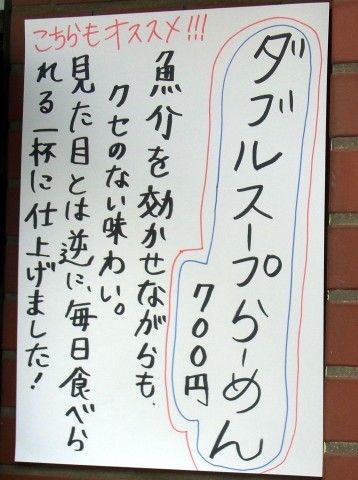 こちらもオススメ!!!
ダブルスープらーめん
700円
魚介を効かせながらも、
クセのない味わい。
見た目とは逆に、毎日食べら
れる一杯に仕上げました!